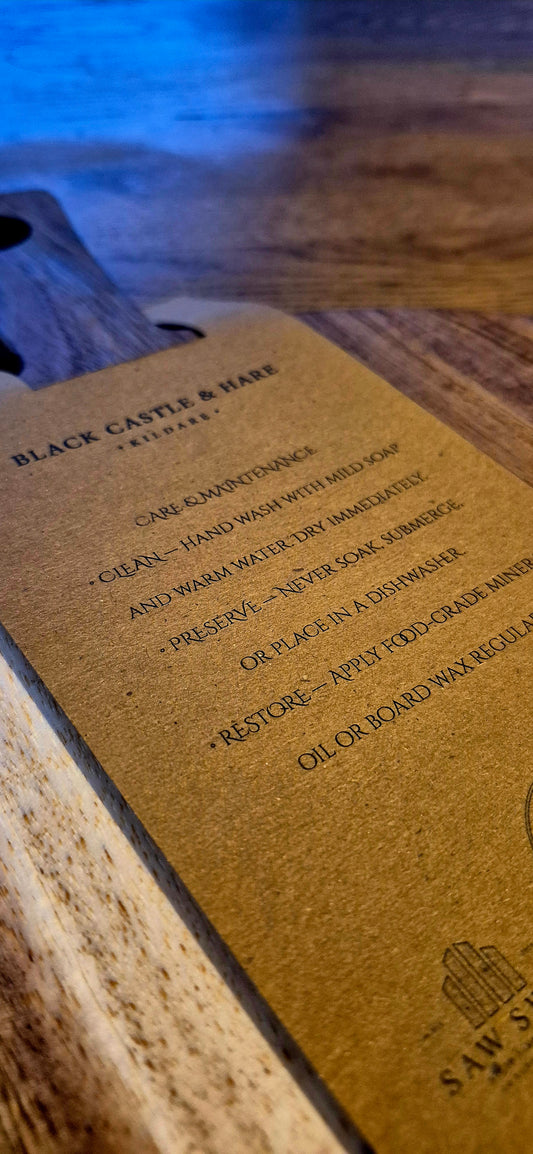 BLACK CASTLE & HARE
• KILDARE •
CARE & MAINTENANCE
• CLEAN — HAND WASH WITH MILD SOAP
AND WARM WATER. DRY IMMEDIATELY.
• PRESERVE — NEVER SOAK, SUBMERGE,
OR PLACE IN A DISHWASHER.
• RESTORE — APPLY FOOD-GRADE MINER
OIL OR BOARD WAX REGULAR
SAW S